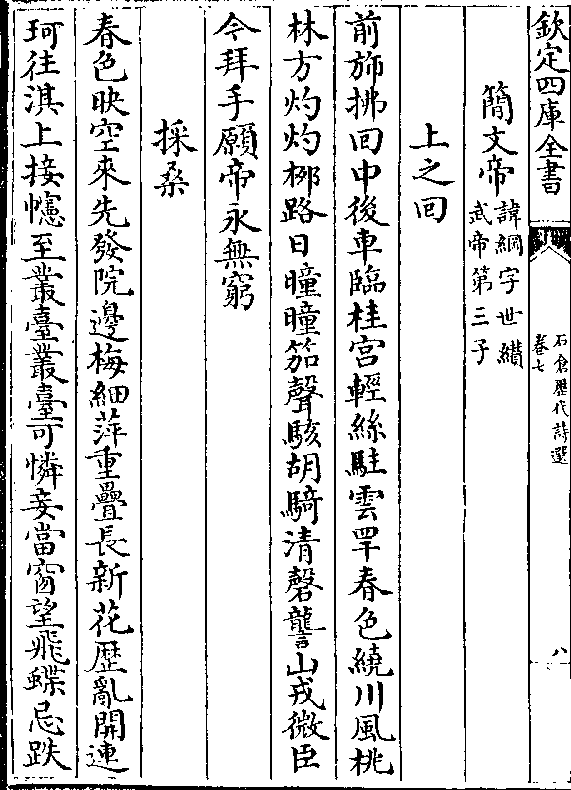 欽定四庫全書
石倉歷代詩選
卷七
八
簡文帝
諱綱字世纘
武帝第三子
上之回
前斾拂回中後車臨桂宮輕絲駐雲䍐春色繞川風桃
林方灼灼栁路日曈曈笳聲駭胡騎清磬讋山戎微臣
今拜手願帝永無窮
採桑
春色映空來先發院邊梅細萍重疊長新花歴亂開連
珂往淇上接幰至叢臺叢臺可憐妾當窗望飛蝶忌跌